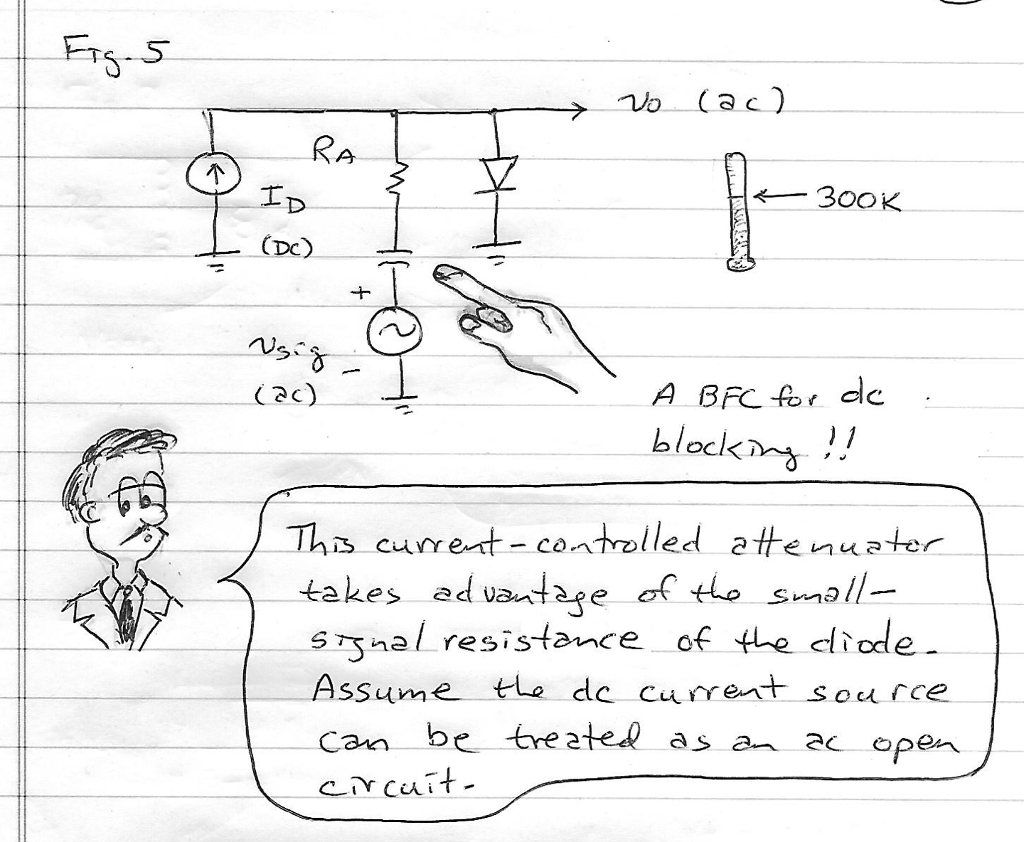 Fig. 5
vo (ac)
RA
300K
ID
(DC)
+
vsig
-
(ac)
A BFC for dc
blocking !!
This current-controlled attenuator
takes advantage of the small-
signal resistance of the diode.
Assume the dc current source
can be treated as an ac open
circuit.